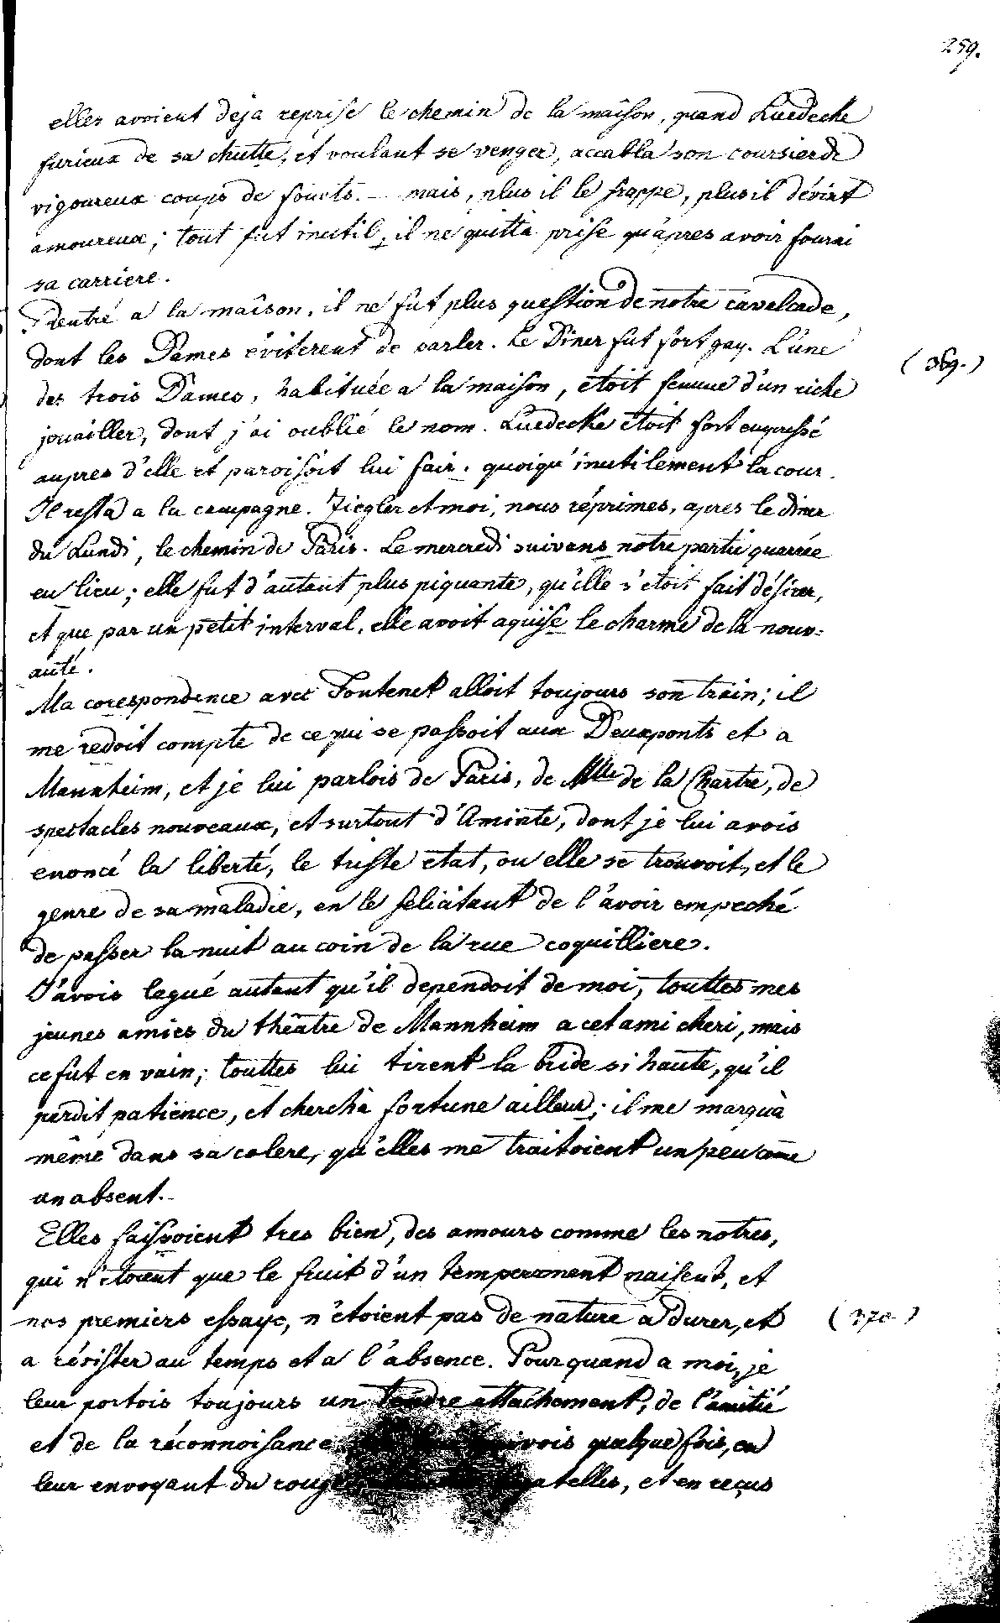 259.
elles avoient deja reprise le chemin de la maîson, quand Luedecke
furieux de sa chutte, et voulant se venger, accabla son coursier de
vigoureux coups de fouets. – mais, plus il le frappe, plus il dévint
amoureux; tout fut inutil, il ne quitta prise qu'apres avoir fourni
sa carriere.
Rentré a la maîson, il ne fut plus question de notre cavalcade,
dont les Dames éviterent de parler. Le Diner fut fort gay. L'une
(369.)
des trois Dames, habituée a la maison, étoit femme d'un riche
jouailler, dont j'ai oublié le nom. Luedecke étoit fort empressé
aupres d'elle et paroisoit lui fair. quoiqu'inutilement la cour.
Il resta a la campagne. Ziegler et moi, nous réprimes, apres le diner
du Lundi, le chemin de Paris. Le mercredi suivans notre partie quarrée
eu lieu; elle fut d'autant plus piquante, qu'elle s'etoit fait désirer,
et que par un petit interval, elle avoit aquise le charme de la nouv=
auté.
Ma corespondence avec Fontenet alloit toujours son train; il
me redoit compte de ce qui se passoit aux Deuxponts et a
Mannheim, et je lui parlois de Paris, de Mlle de la Chartre, de
spectacles nouveaux, et surtout d'Aminte, dont je lui avois
enoncé la liberté, le triste etat, ou elle se trouvoit, et le
genre de sa maladie, en le feliçitant de l'avoir empeché
de passer la nuit au coin de la rue coquilliere.
J'avois legué autant qu'il dependoit de moi, touttes mes
jeunes amies du théatre de Mannheim a cet ami cheri, mais
ce fut en vain; touttes lui tirent la bride si haute, qu'il
perdit patience, et chercha fortune ailleur; il me marqua
même dans sa colere, qu'elles me traitoient un peu come
un absent. –
Elles faisvoient tres bien, des amours comme les notres,
qui n'étoient que le fruit d'un temperament naisent, et
nos premiers essaye, n'étoient pas de nature a durer, et
(370.)
a résister au temps et a l'absence. Pour quand a moi, je
leur portois toujours un tendre attachement, de l'amitié
et de la réconnoisance quelque fois, en
leur envoyant du rouge et en reçus